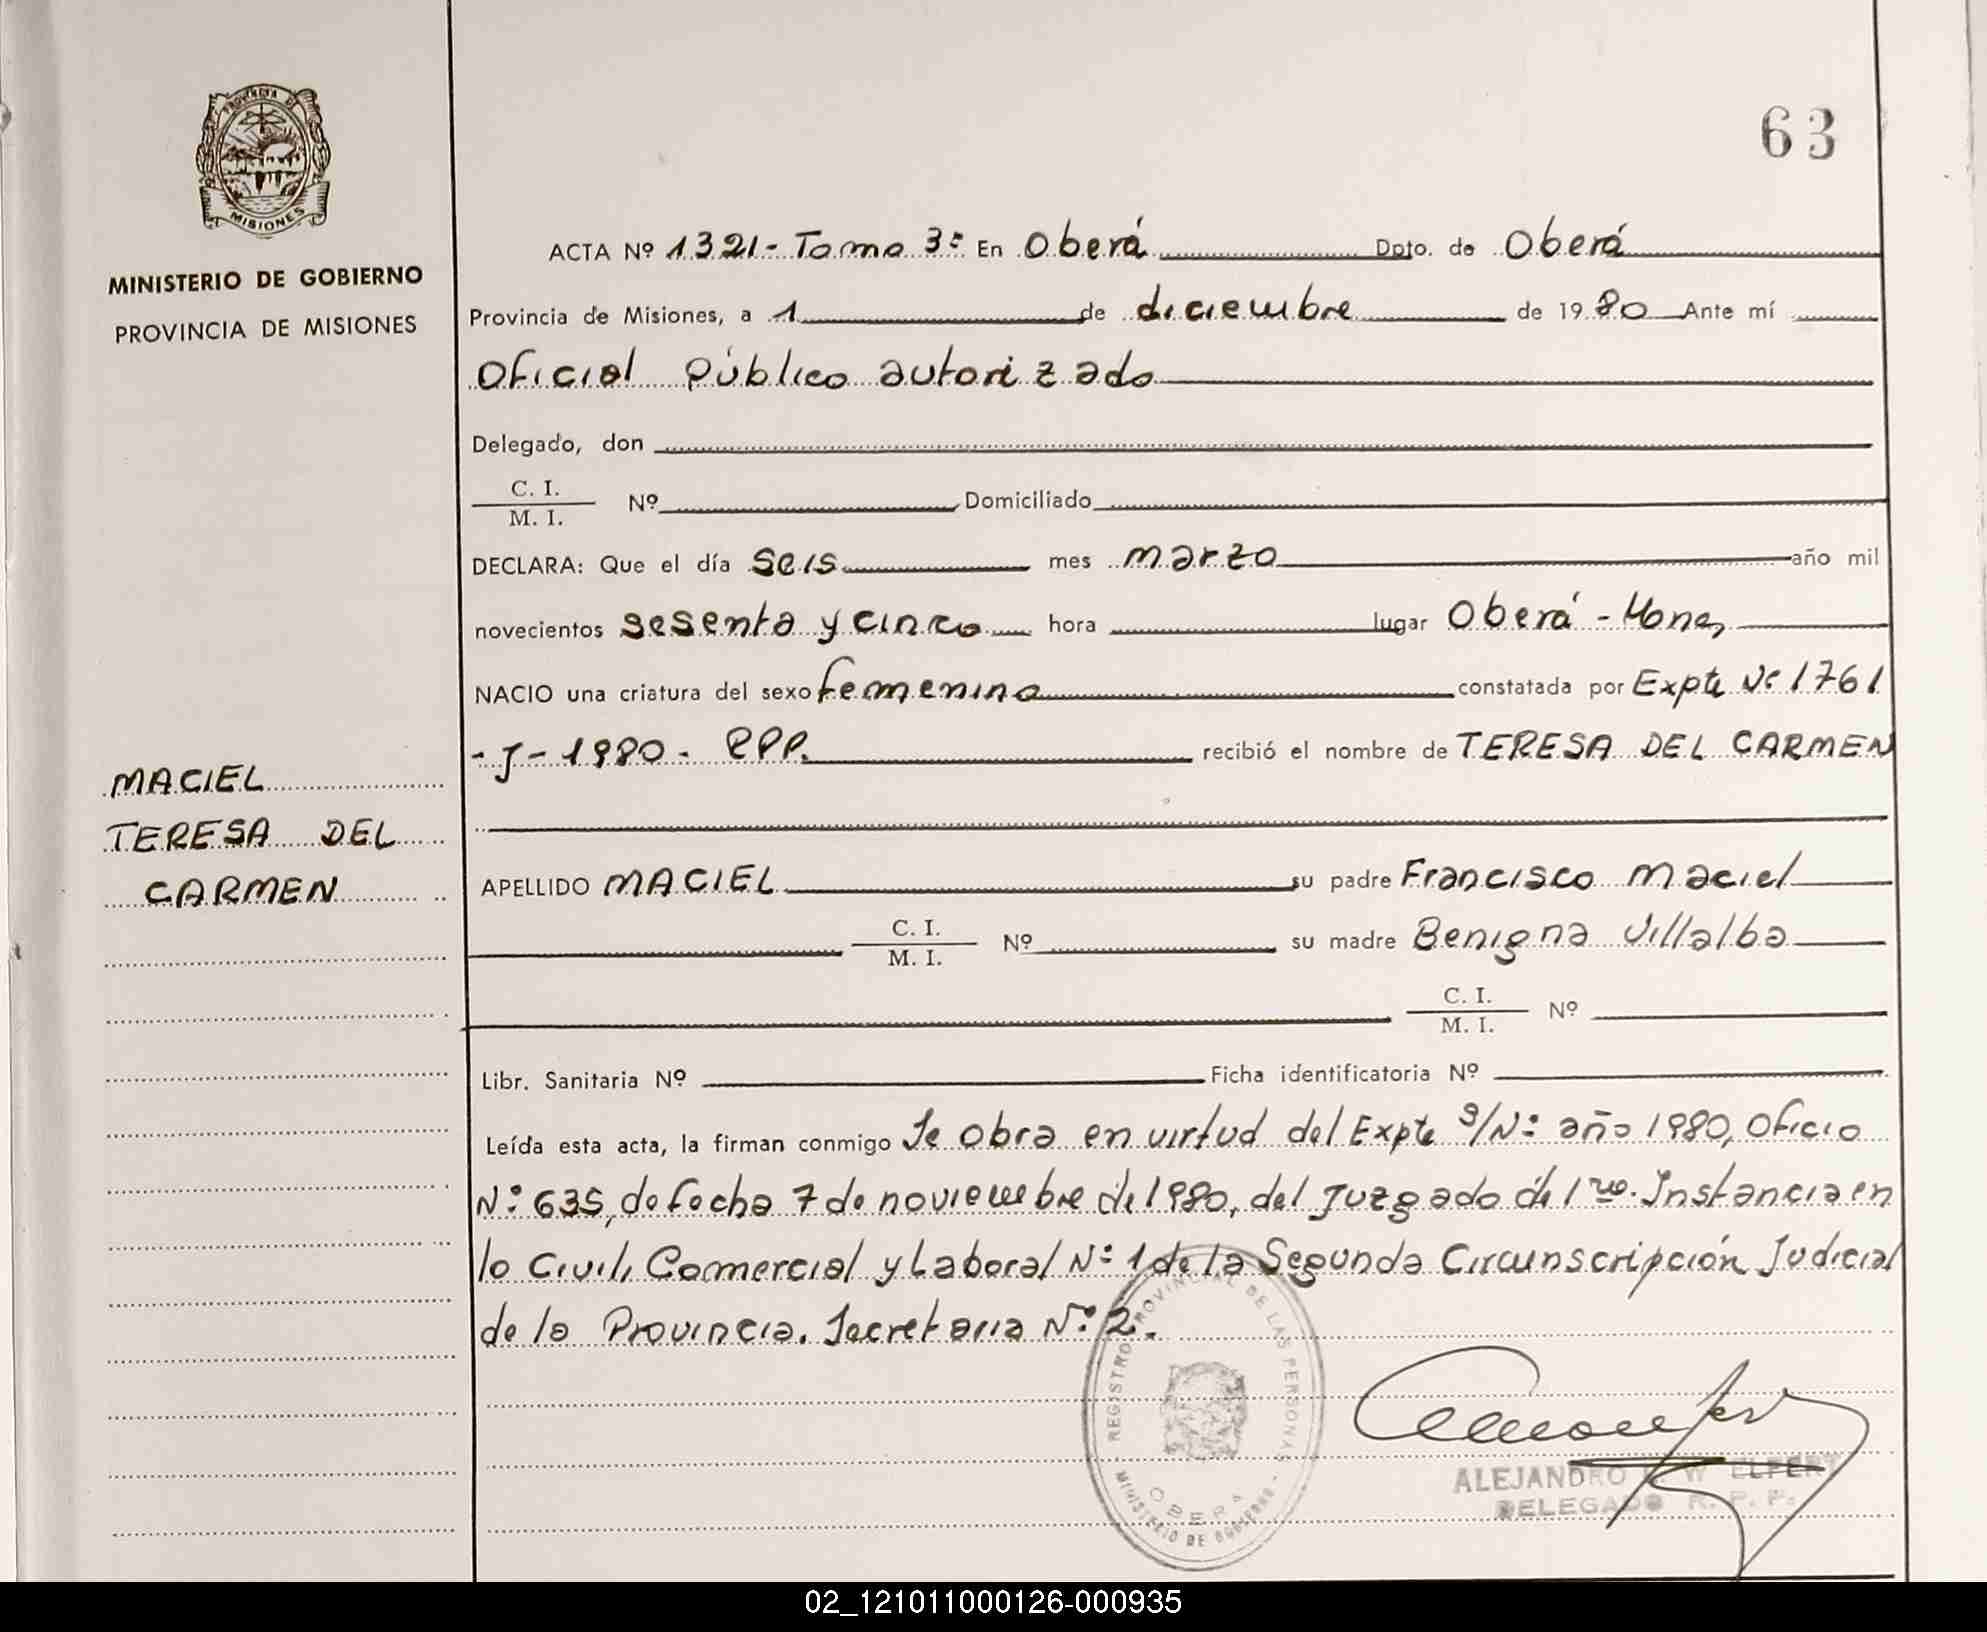 PROVINCIA DE
MISIONES
MINISTERIO DE GOBIERNO
PROVINCIA DE MISIONES
63
ACTA Nº 1321- Tomo 3º En Oberá Dpto. de Oberá
Provincia de Misiones, a 1 de diciembre de 1980 Ante mí
Oficial Público autorizado
Delegado, don
C. I.
M. I. Nº Domiciliado
DECLARA: Que el día seis mes marzo año mil
novecientos sesenta y cinco hora lugar Oberá - Mones,
NACIO una criatura del sexo femenino constatada por Expte Nº 1761
- J - 1980 - RPP. recibió el nombre de TERESA DEL CARMEN
MACIEL
TERESA DEL
CARMEN
APELLIDO MACIEL su padre Francisco Maciel
C. I.
M. I. Nº su madre Benigna Villalba
C. I.
M. I. Nº
Libr. Sanitaria Nº Ficha identificatoria Nº
Leída esta acta, la firman conmigo Se obra en virtud del Expte S/Nº año 1980, Oficio
Nº 635, de fecha 7 de noviembre de 1980, del Juzgado de 1ra. Instancia en
lo Civil, Comercial y Laboral Nº 1 de la Segunda Circunscripción Judicial
de la Provincia. Secretaria Nº 2.
REGISTRO PROVINCIAL DE LAS PERSONAS
OBERA
MINISTERIO DE GOBIERNO
ALEJANDRO W ELFERT
DELEGADO R. P. P.
02_121011000126-000935